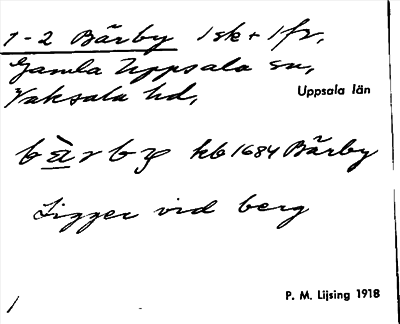 1-2 Bärby 1 sk + 1 fr,
Gamla Uppsala sn,
Vaksala hd,
Uppsala län
bä̀rby kb 1684 Bärby
Ligger vid berg
P. M. Lijsing 1918
/